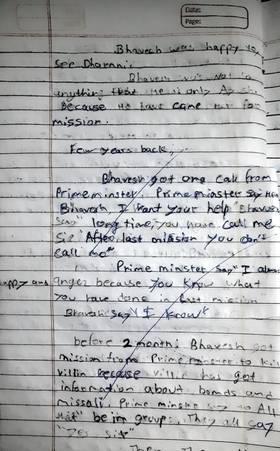 Date:
Page:
Bhavesh was happy to
see Dharani.
Bhavesh was not
anything that He is only
Because He have came for
mission.
Few years back,
Bhavesh got one call from
Prime minster, Prime minster say
Bhavesh, I want your help Bhavesh
say" long time, you have call me
Sir After last mission you don't
call me"
Prime minster say" I
happy and
anger because you know what
you have done in last mission
Bhavesh say "I know"
before 2 months, Bhavesh got
mission from Prime minster to
villin because villin has got
information about bomds and
missali. Prime minster say to All
be in group. They all say
"Yes sir"